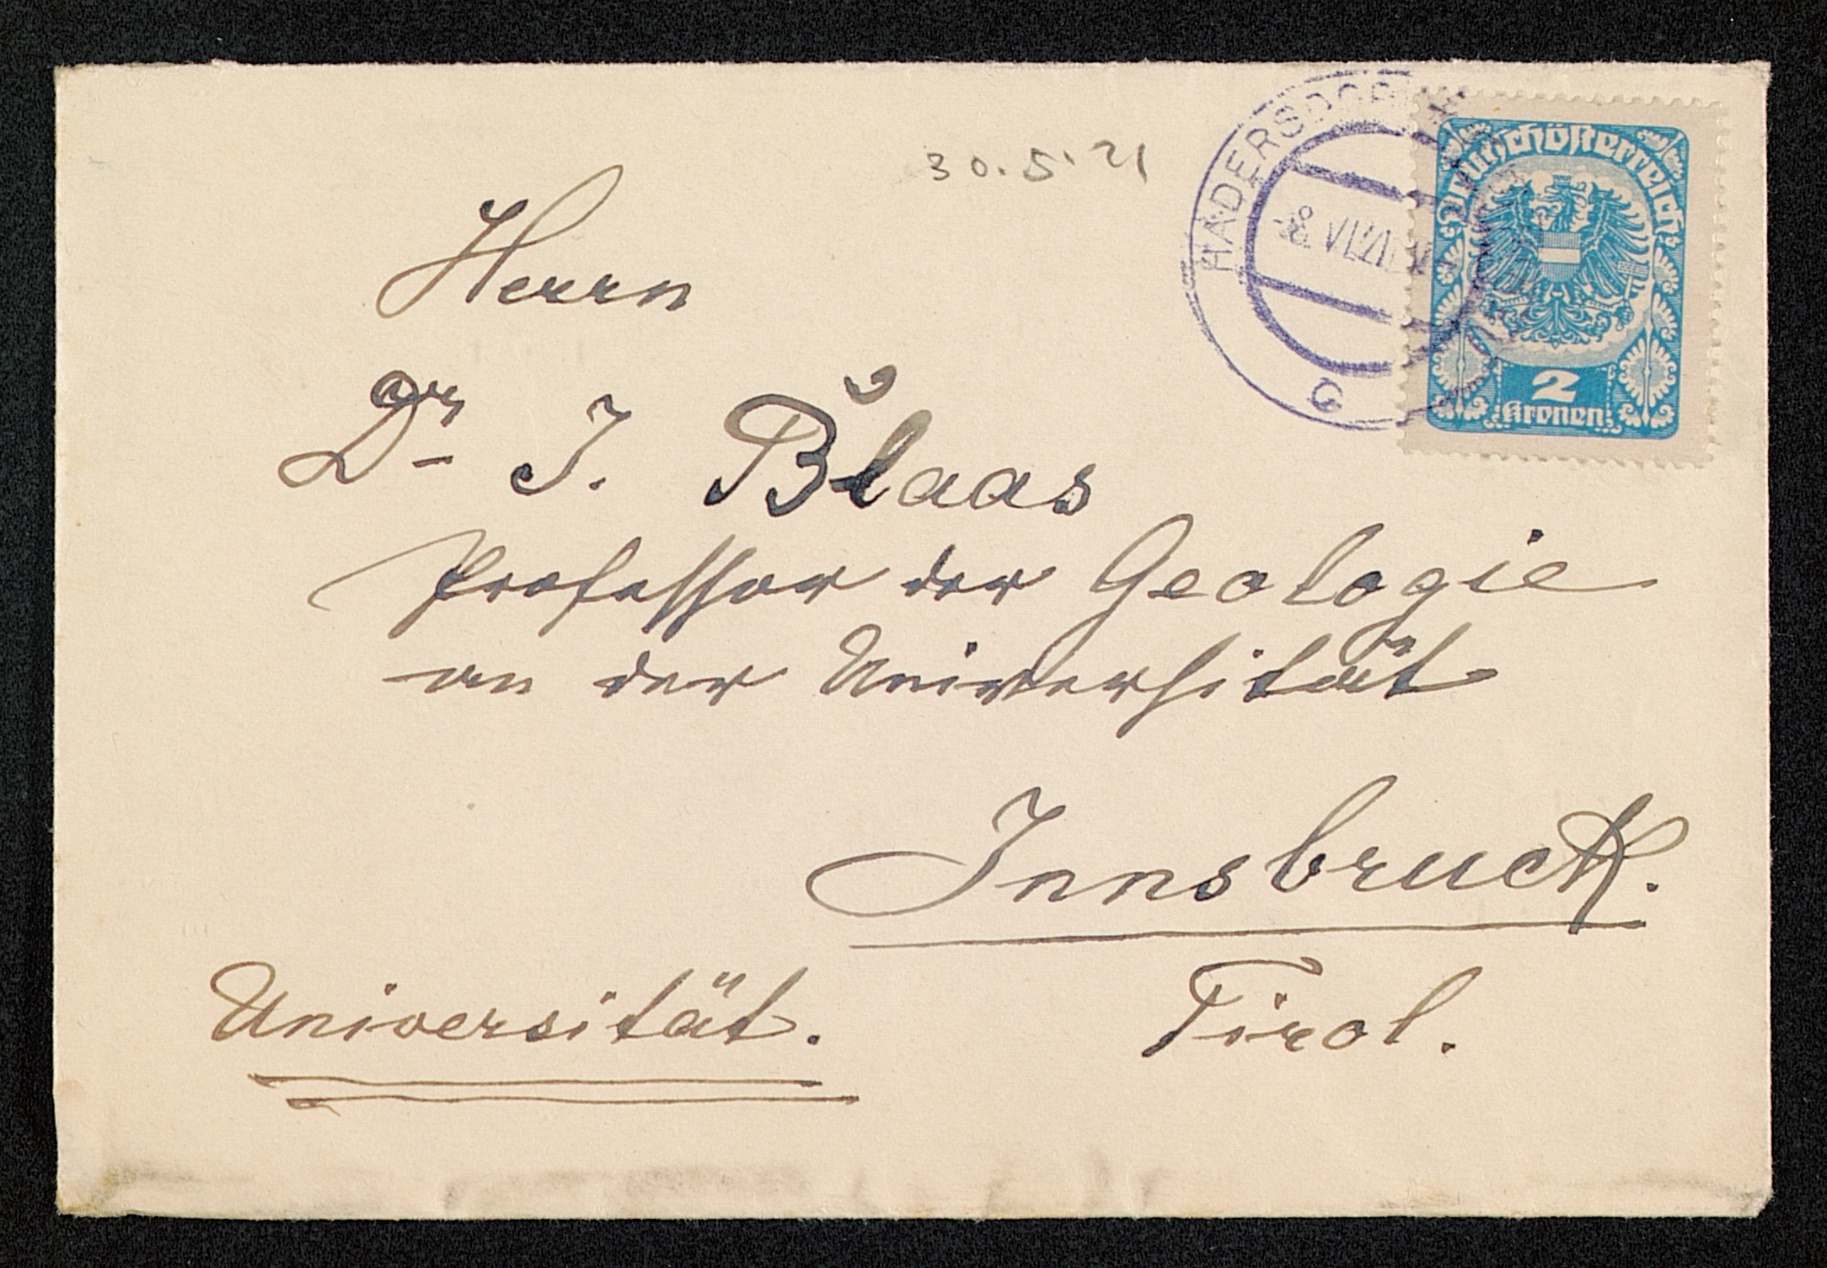 30.5.21
HADERSDORF
-8.VI.21
c
Deutschösterreich
2
Kronen
Herrn
Dr. J. Blaas
Professor der Geologie
an der Universität
Innsbruck.
Universität.
Tirol.